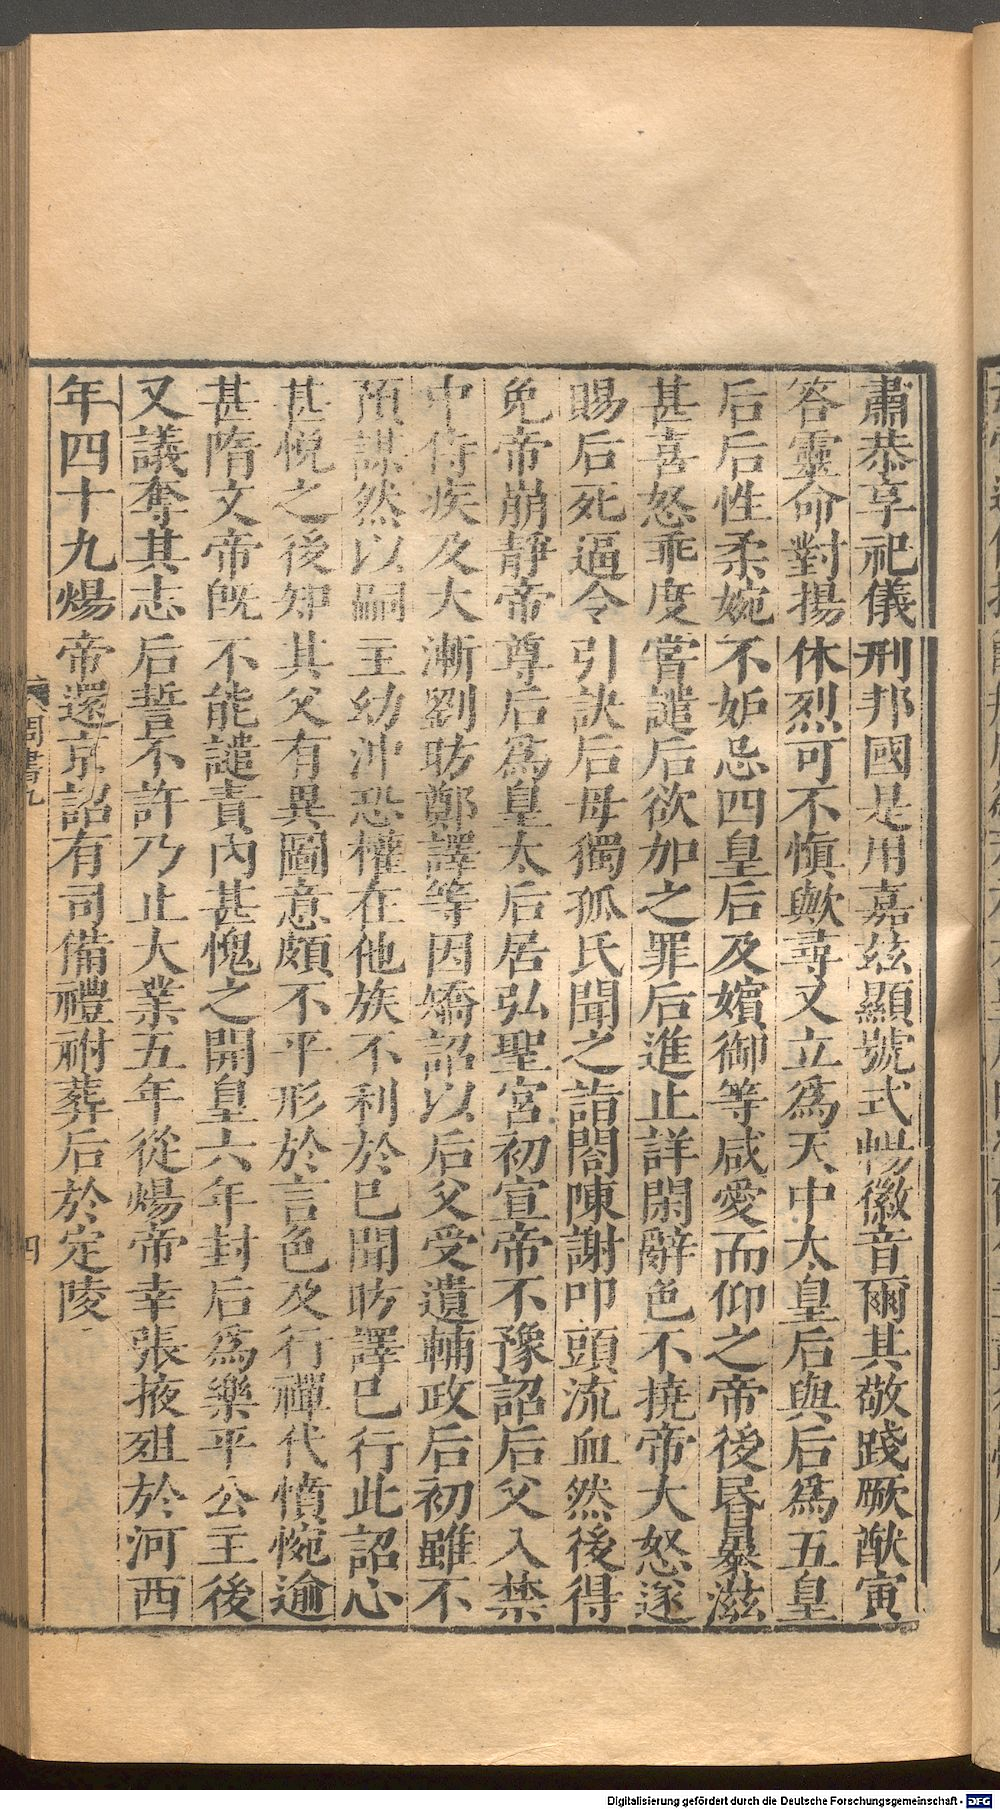 肅恭享祀儀刑邦國是用嘉茲顯號式暢徽音爾其敬踐厥猷寅
答靈命對揚休烈可不慎歟尋又立為天中太皇后與后為五皇
后后性柔婉不妬忌四皇后及嬪御等咸愛而仰之帝後昏暴滋
甚喜怒乖度嘗譴后欲加之罪后進止詳閑辭色不撓帝大怒遂
賜后死逼令引訣后母獨孤氏聞之詣閤陳謝叩頭流血然後得
免帝崩靜帝尊后為皇太后居弘聖宮初宣帝不豫詔后父入禁
中侍疾及大漸劉昉鄭譯等因矯詔以后父受遺輔政后初雖不
預謀然以嗣主幼沖恐權在他族不利於己聞昉譯已行此詔心
甚悅之後知其父有異圖意頗不平形於言色及行禪代憤惋逾
甚隋文帝旣不能譴責內甚愧之開皇六年封后為樂平公主後
又議奪其志后誓不許乃止大業五年從煬帝幸張掖殂於河西
年四十九煬帝還京詔有司備禮祔葬后於定陵
周書九
四
Digitalisierung gefördert durch die Deutsche Forschungsgemeinschaft - DFG